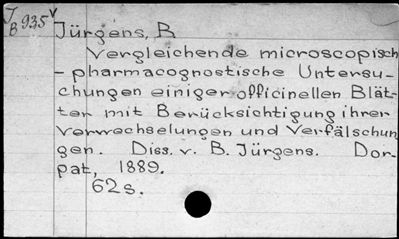 J 935 v
B
Jürgens, B
Vergleichende microscopisch
-pharmacognostische Untersu-
chungen einiger officinellen Blät-
ter mit Berücksichtigung ihrer
Verwechselungen und Verfälschun
gen. Diss. v. B. Jürgens. Dor-
pat, 1889.
62 s.